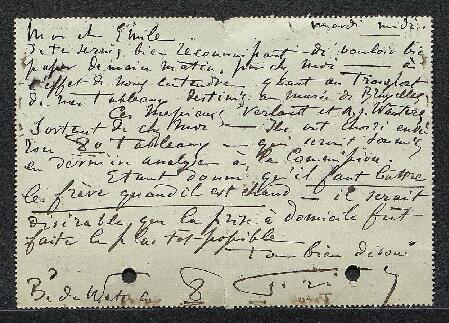 mardi midi
Mon ch Emile
Je te serais bien reconnaissant de vouloir bien
passer demain matin, par ch moi — à
l'effet de nous entendre quant au transport
de mes tableaux destinés au musée de Bruxelles
Ces Messieurs Verlant et A.J. Wauters
sortent de ch moi — Ils ont choisi
80 tableaux — qui seront soumis
en dernière analyse à la Commission.
Etant donné qu'il faut battre
le fer quand il est chaud — il serait
désirable que la prise à domicile fut
faite le plus tot possible
Ton bien dévoué
Bd de Waterloo 8